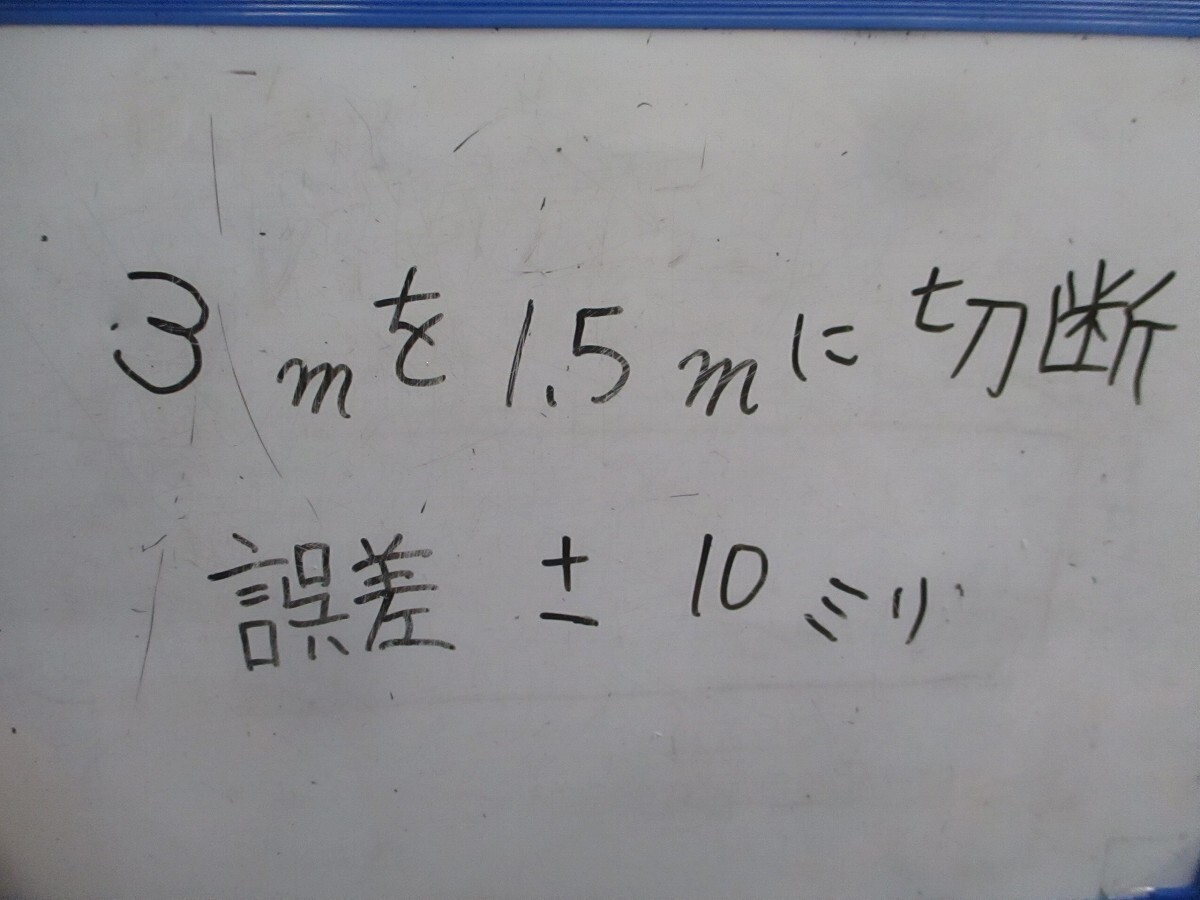 3mを1.5mに切断
誤差 ± 10ミリ